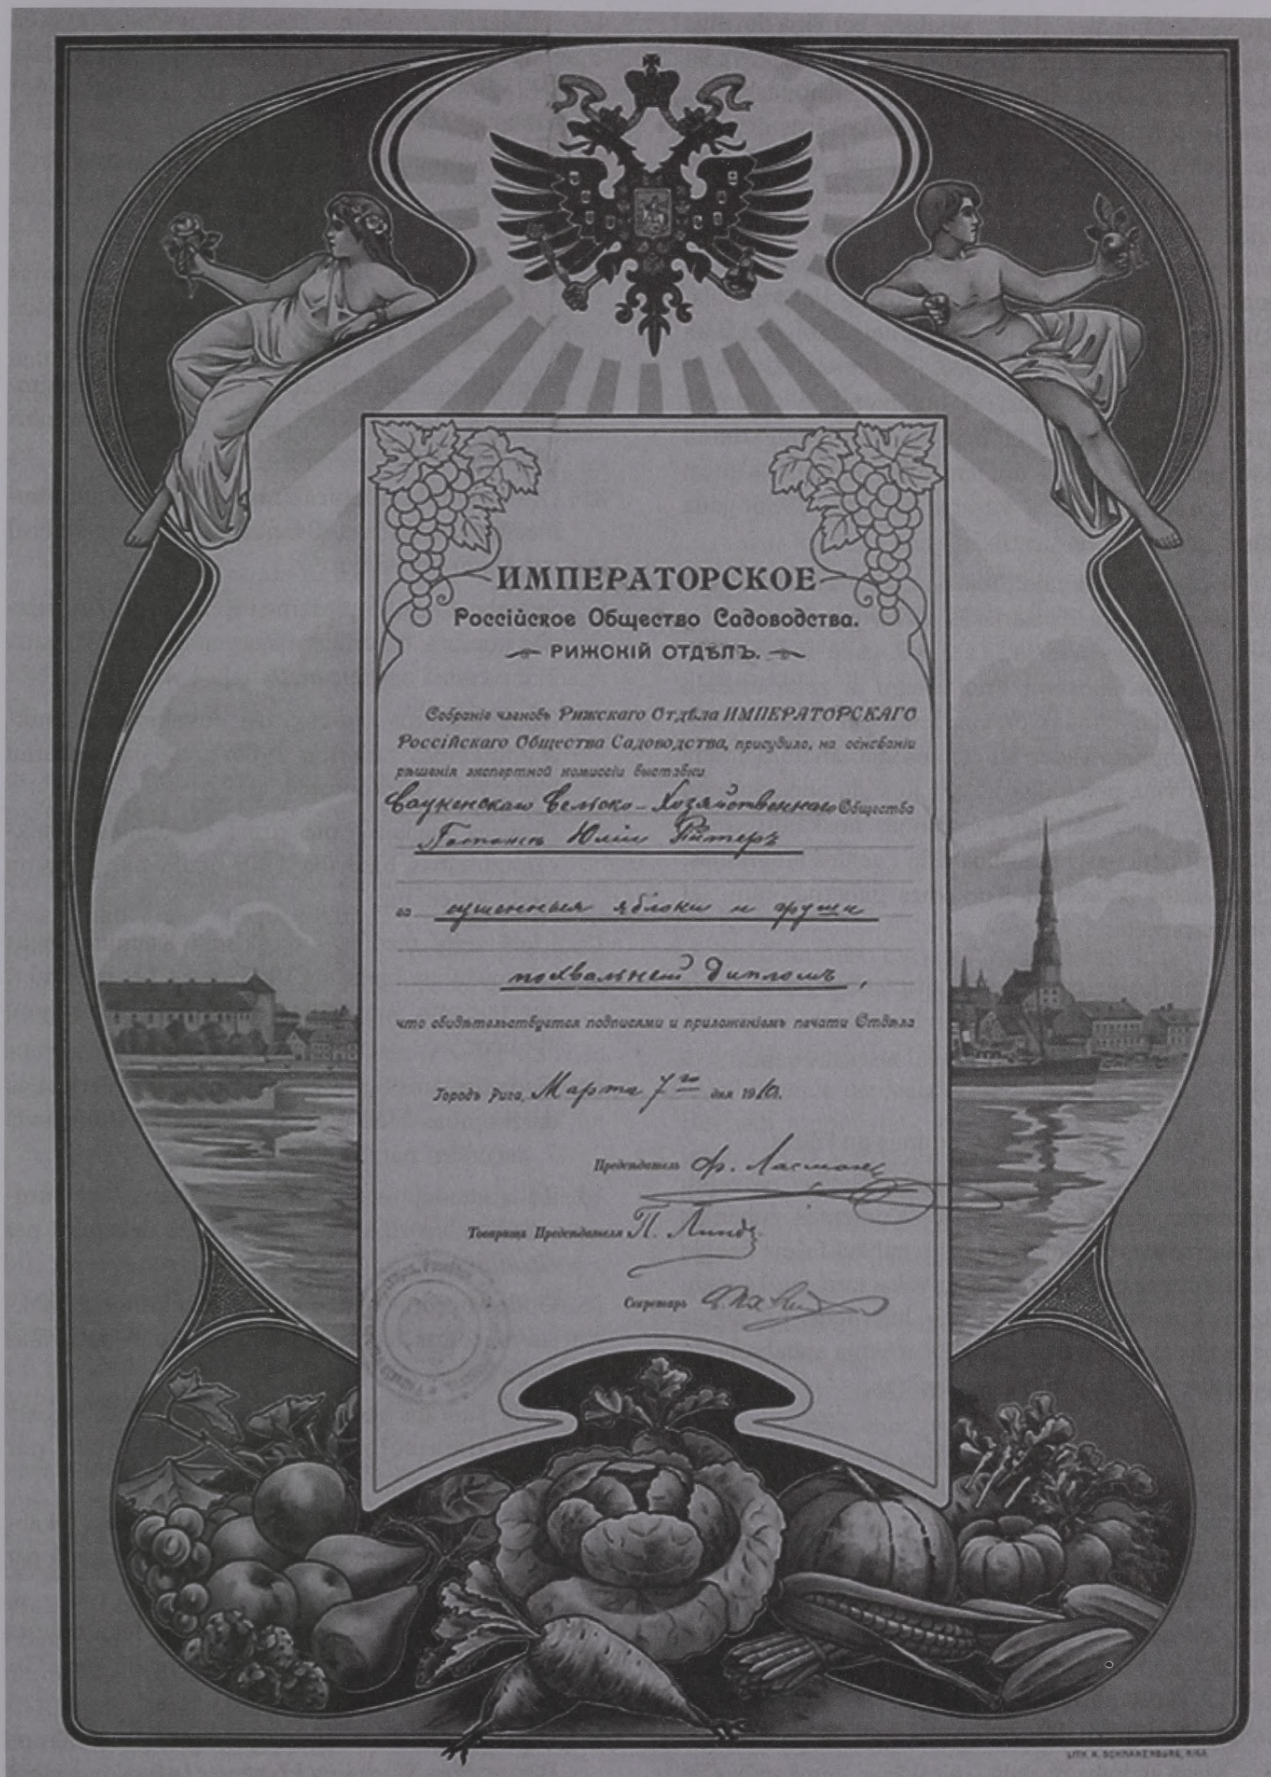 ИМПЕРАТОРСКОЕ
Россійское Общество Садоводства.
РИЖСКІЙ ОТДѢЛЪ.
Собраніе членовъ Рижскаго Отдѣла ИМПЕРАТОРСКАГО
Россійскаго Общества Садоводства, присудило, на основаніи
рѣшенія экспертной комиссіи выставки
Саукенскаго Сельско-Хозяйственнаго Общества
Юліи
за сушенныя яблоки и груши
похвальный дипломъ,
что свидѣтельствуется подписями и приложеніемъ печати Отдѣла
Городъ Рига, Марта 7го дня 1910.
Предсѣдатель Ф. Ласманъ
Товарищъ Предсѣдателя П. Линде
Секретарь
LITH. A. SCHNAKENBURG, RIGA